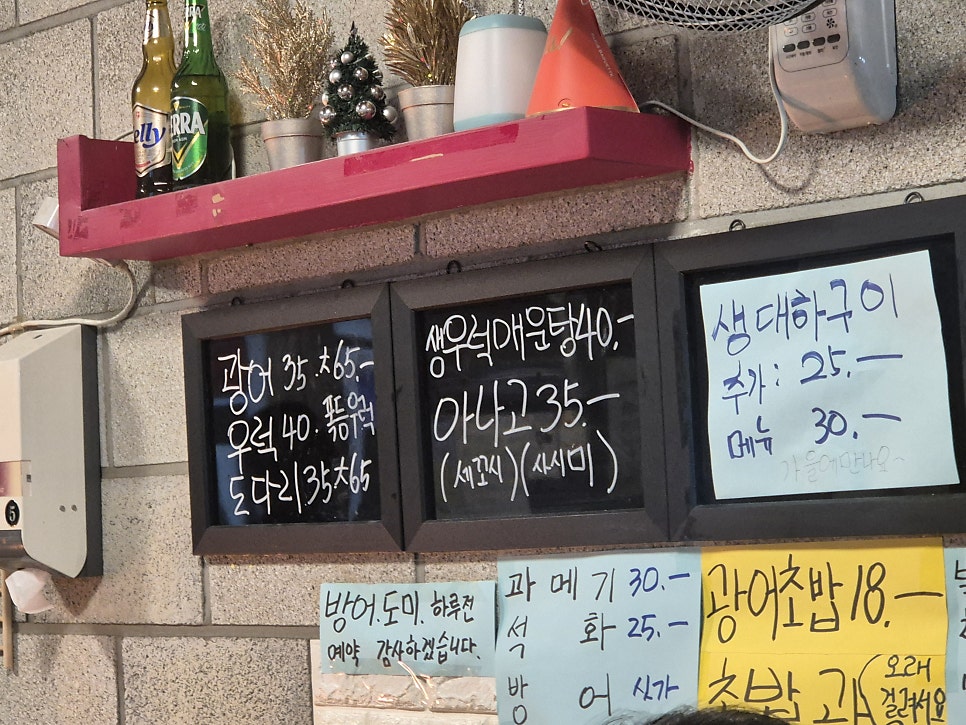 elly
ERRA
광어 35.大65.-
우럭 40. 폭등우럭
도다리 35大65
생우럭매운탕40.-
아나고 35.-
(세꼬시)(사시미)
생대하구이
추가: 25.-
메뉴 30.-
가을에만나요~
5
방어.도미. 하루전
예약 감사하겠습니다.
과메기 30.-
석화 25.-
방어 싯가
광어초밥 18.-
초밥
(오래
걸려서요